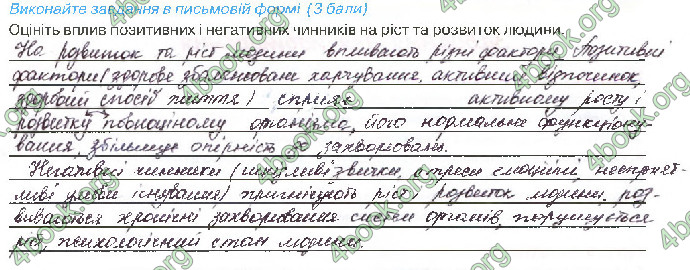 Виконайте завдання в письмовій формі (3 бали)
Оцініть вплив позитивних і негативних чинників на ріст та розвиток людини.
На розвиток та ріст людини впливають різні фактори. Позитивні
фактори (здорове збалансоване харчування, активний відпочинок,
здоровий спосіб життя) сприяє активному росту і
розвитку повноціному організма, його нормальне функціону-
вання, збільшує опірність до захворювань.
Негативні чинники (шкідливі звички, стреси емоційні, несприят-
ливі умови існування) пригнічують ріст, розвиток людини, роз-
виваються хронічні захворювання систем органів, порушується
ріст, психологічний стан людини.
4book.org